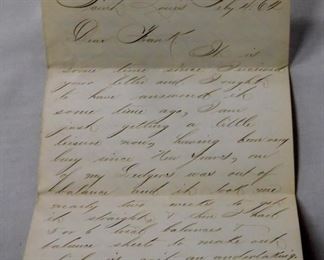 Saint Louis July 4, 64
Dear Frank
It is
some time since I received
your letter and I ought
to have answered it
some time ago, I am
just getting a little
leisure now, having been very
busy since New Years, one
of my Ledgers was out of
balance and it took me
nearly two weeks to get
it straight, & then I had
5 or 6 trial balances &
balance sheet to make out